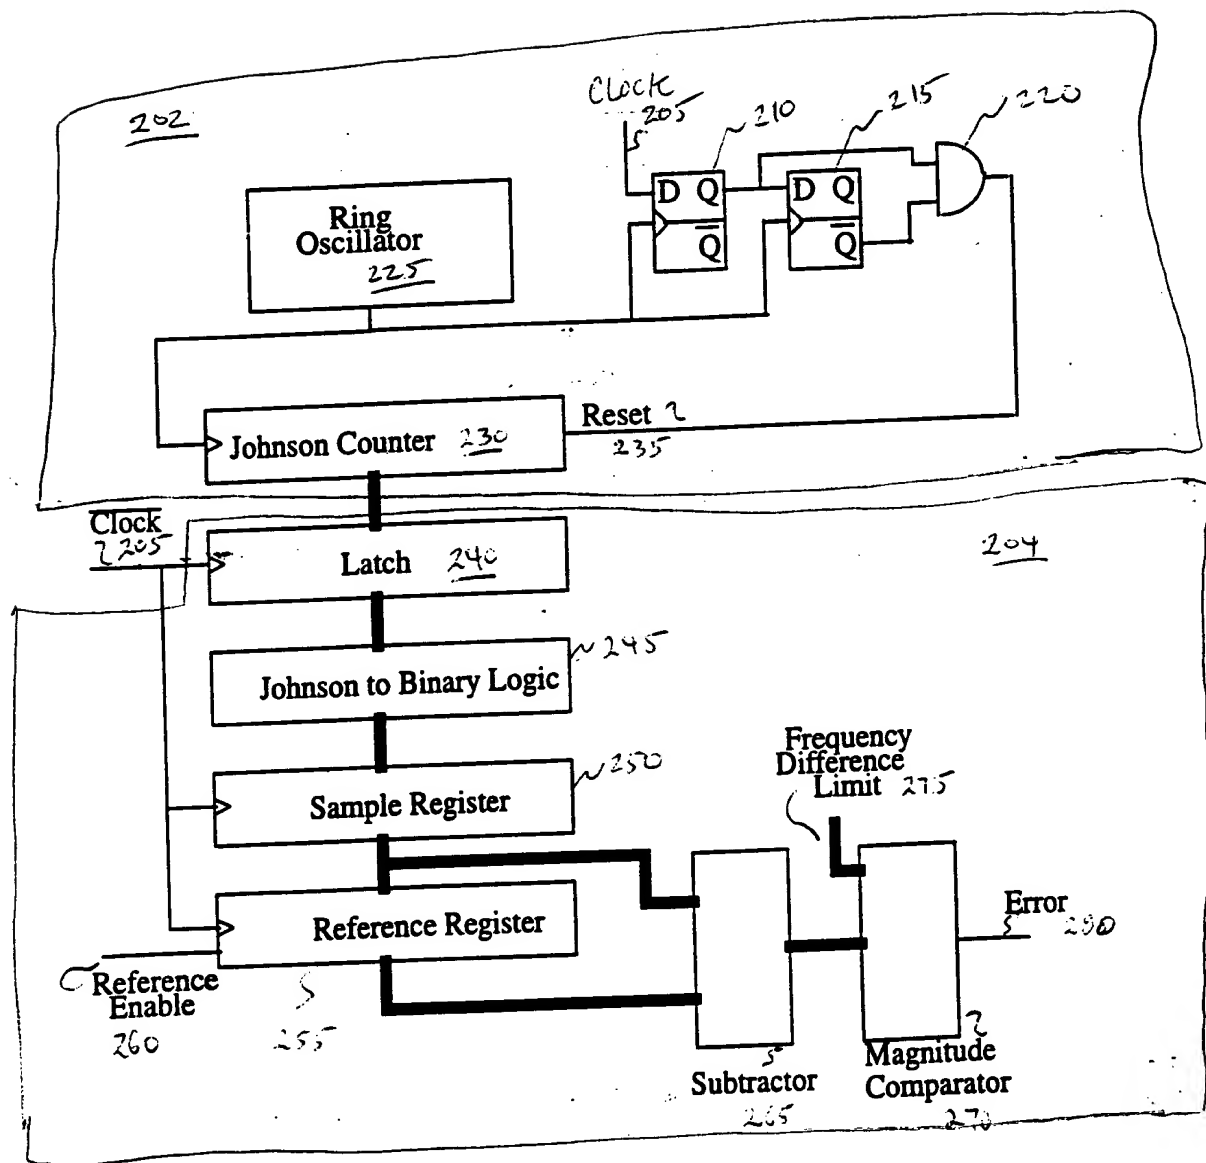 202
Clock
205
210
215
220
D Q
Q
D Q
Q
Ring
Oscillator
225
Johnson Counter 230
Reset
235
Clock
205
Latch 240
204
Johnson to Binary Logic
245
Sample Register
250
Frequency
Difference
Limit 275
Reference Register
Error
280
Reference
Enable
260
255
Subtractor
265
Magnitude
Comparator
270